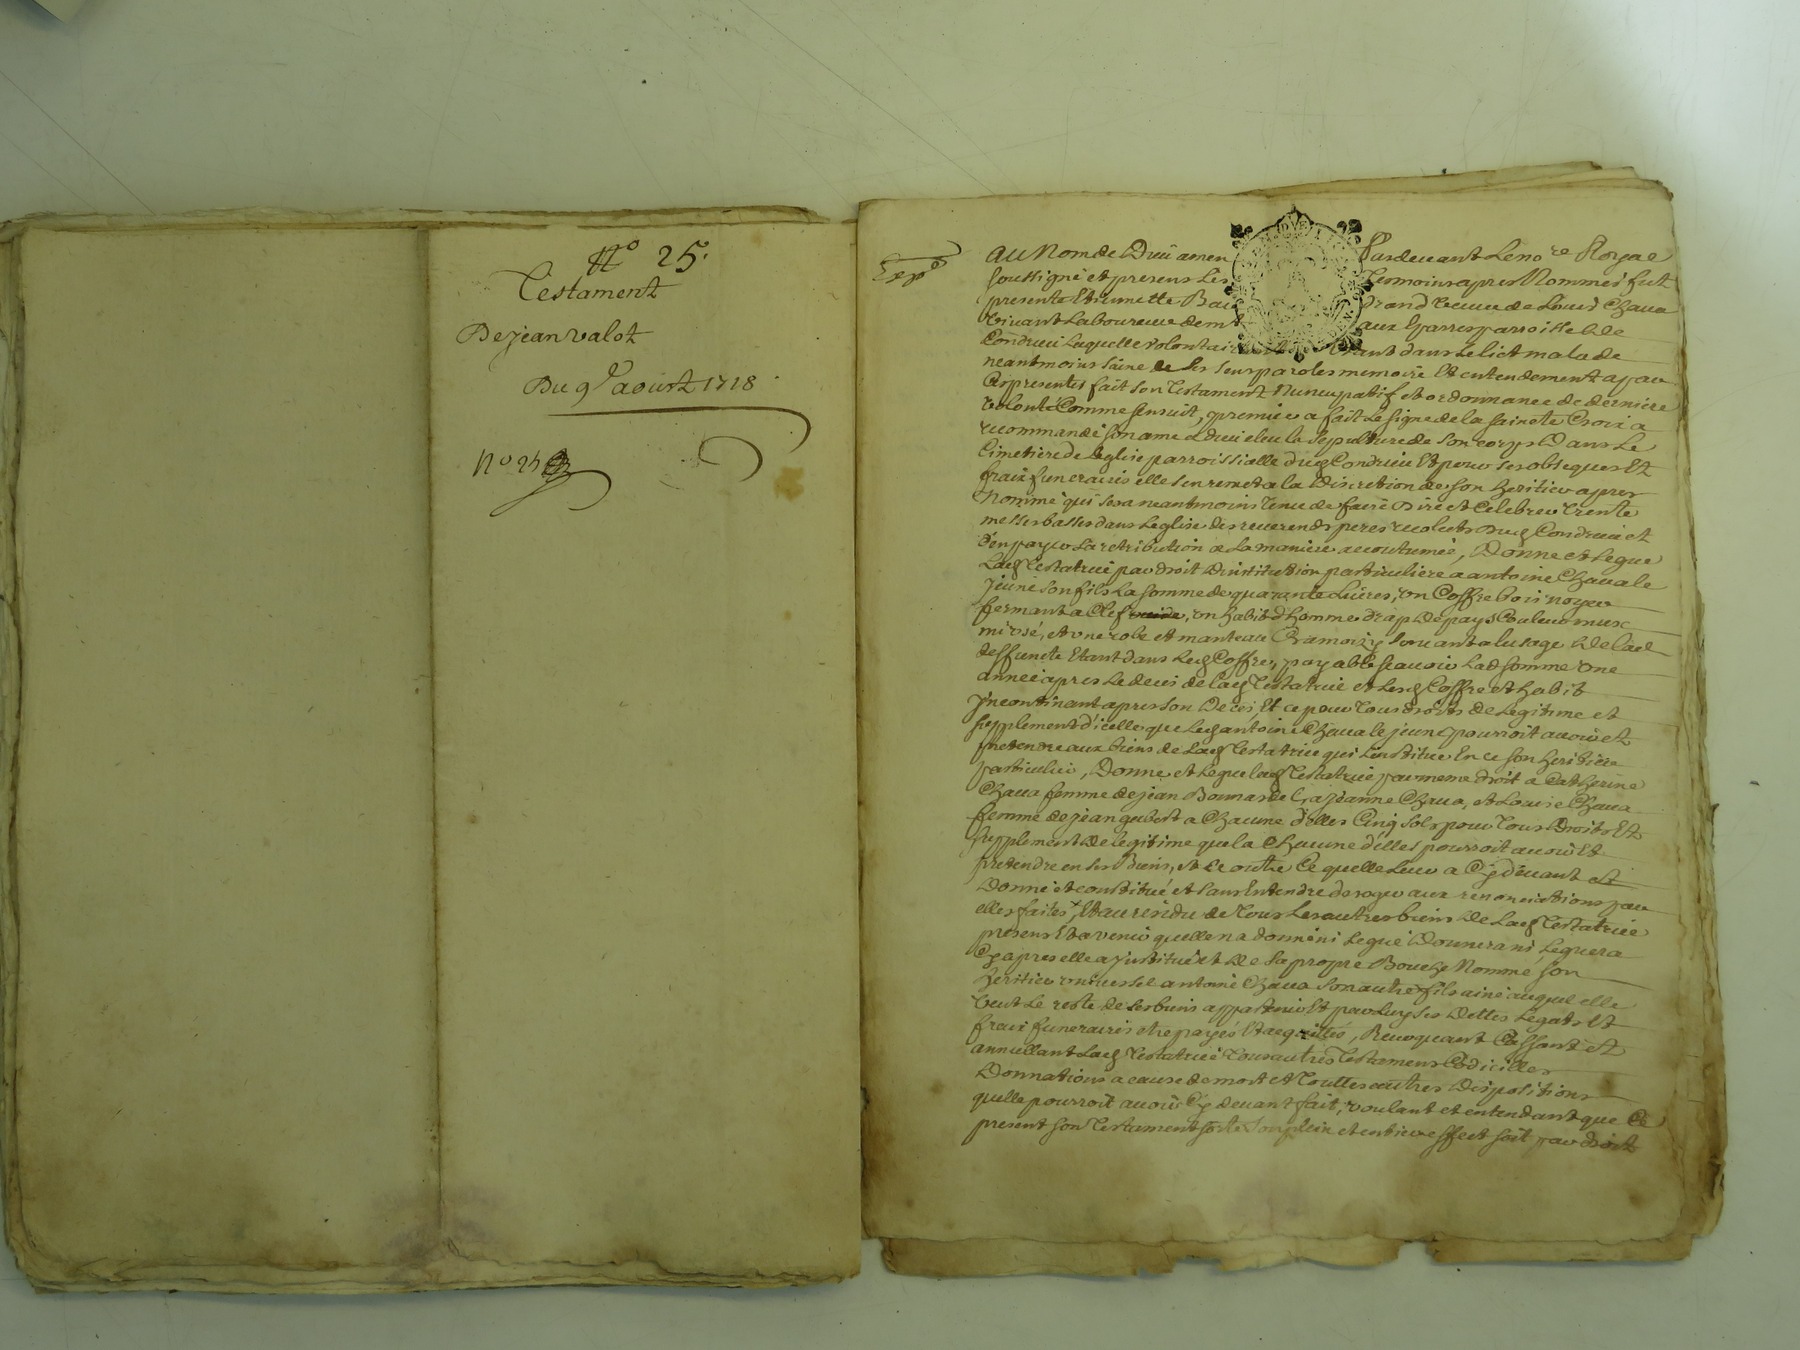 N° 25.
Testament
De jean valot
Du 9e aoust 1718
N° 25
Exp°
Au Nom de Dieu amen Pardevant le no.re Royal
soussigné et presens les Temoins apres Nommés fut
presente Etiennette Bau drand veuve de Louis Chava
vivant Laboureur dem aux parroisse de
Condrieu laquelle volontair Etant dans le lict malade
neantmoins saine de ses sens paroles memoire Et entendement a par
Ces presentes fait son Testament Nuncupatif et ordonnance de derniere
volonté Comme sensuit, premier a fait le signe de la saincte Croix a
recommandé son ame a Dieu eleu la sepulture de son corps Dans Le
Cimetiere de Leglise parroissialle dud Condrieu Et pour ses obseques Et
fraix funeraires elle sen remet a la Discretion de son heritier apres
Nommé qui sera neantmoins Tenu de faire Dire et Celebrer Trente
messes basses dans Leglise des reverends peres recolets dud Condrieu et
den payer La retribution a La maniere accoutumée, Donne et Legue
Lad Testatrice par droit Dinstitution particuliere a antoine Chava le
jeune son fils La somme de quarante Livres, un Coffre bois noyer
fermant a Clef, un habit dhomme drap de pays Couleur musc
mi usé, et une robe et manteau Cramoizy servant a lusage De lad
deffuncte Etant dans led Coffre, payable scavoir Lad somme une
année apres Le deces de lad Testatrice et Lesd Coffre et habit
Incontinant apres son Deces, Et ce pour Tous droits de Legitime et
supplement d'icelle que Led antoine Chava le jeune pourroit avoir et
pretendre aux biens de Lad Testatrice qui Linstitue En ce son heritier
particulier, Donne et Legue lad Testatrice par meme droit a Catherine
Chava femme de jean a Jeanne Chava, et Louise Chava
femme de jean gubert a Chacune d'elles Cinq sols pour Tous Droits Et
supplement De legitime que la Chacune d'elles pourroit avoir Et
pretendre en ses biens, et ce outre Ce quelle Leur a Cy devant
Donné et constitué et sans Entendre deroger aux renonciations par
elles faites, Et au residu de Tous Les autres biens De Lad Testatrice
presens Et avenir quelle na donné ni Legué Donnera ni Leguera
Cy apres elle a jnstitué et De sa propre Bouche Nommé son
heritier universel antoine Chava son autre fils ainé auquel elle
veut Le reste de ses biens appartenir Et par Luy ses Dettes Legats Et
fraix funeraires etre payés Et acquittés, Revoquant Cassant et
annullant Lad Testatrice Tous autres Testamens Codicilles
Donnations a cause de mort et Touttes autres Dispositions
quelle pourroit avoir Cy devant fait, voulant et entendant que Ce
present son Testament sorte son plein et entier effect soit par droit